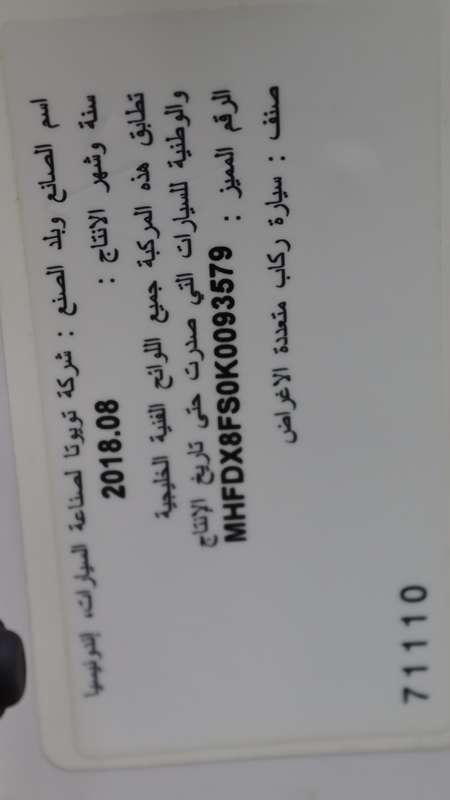 اسم الصانع وبلد الصنع : شركة تويوتا لصناعة السيارات، إندونيسيا
سنة وشهر الانتاج : 2018.08
تطابق هذه المركبة جميع اللوائح الفنية الخليجية
والوطنية للسيارات التي صدرت حتى تاريخ الإنتاج
الرقم المميز : MHFDX8FS0K0093579
صنف : سيارة ركاب متعددة الاغراض
71110